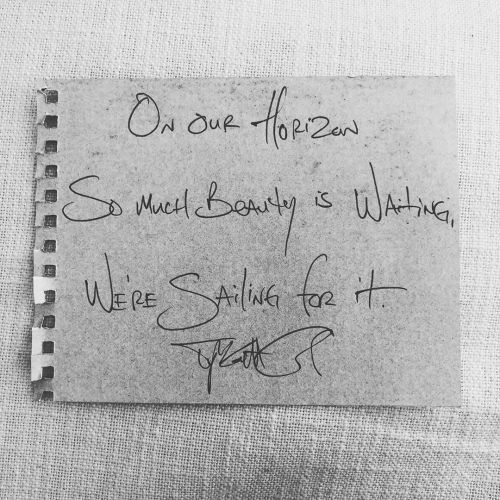 On our Horizon
So much Beauty is Waiting,
We're Sailing for it.